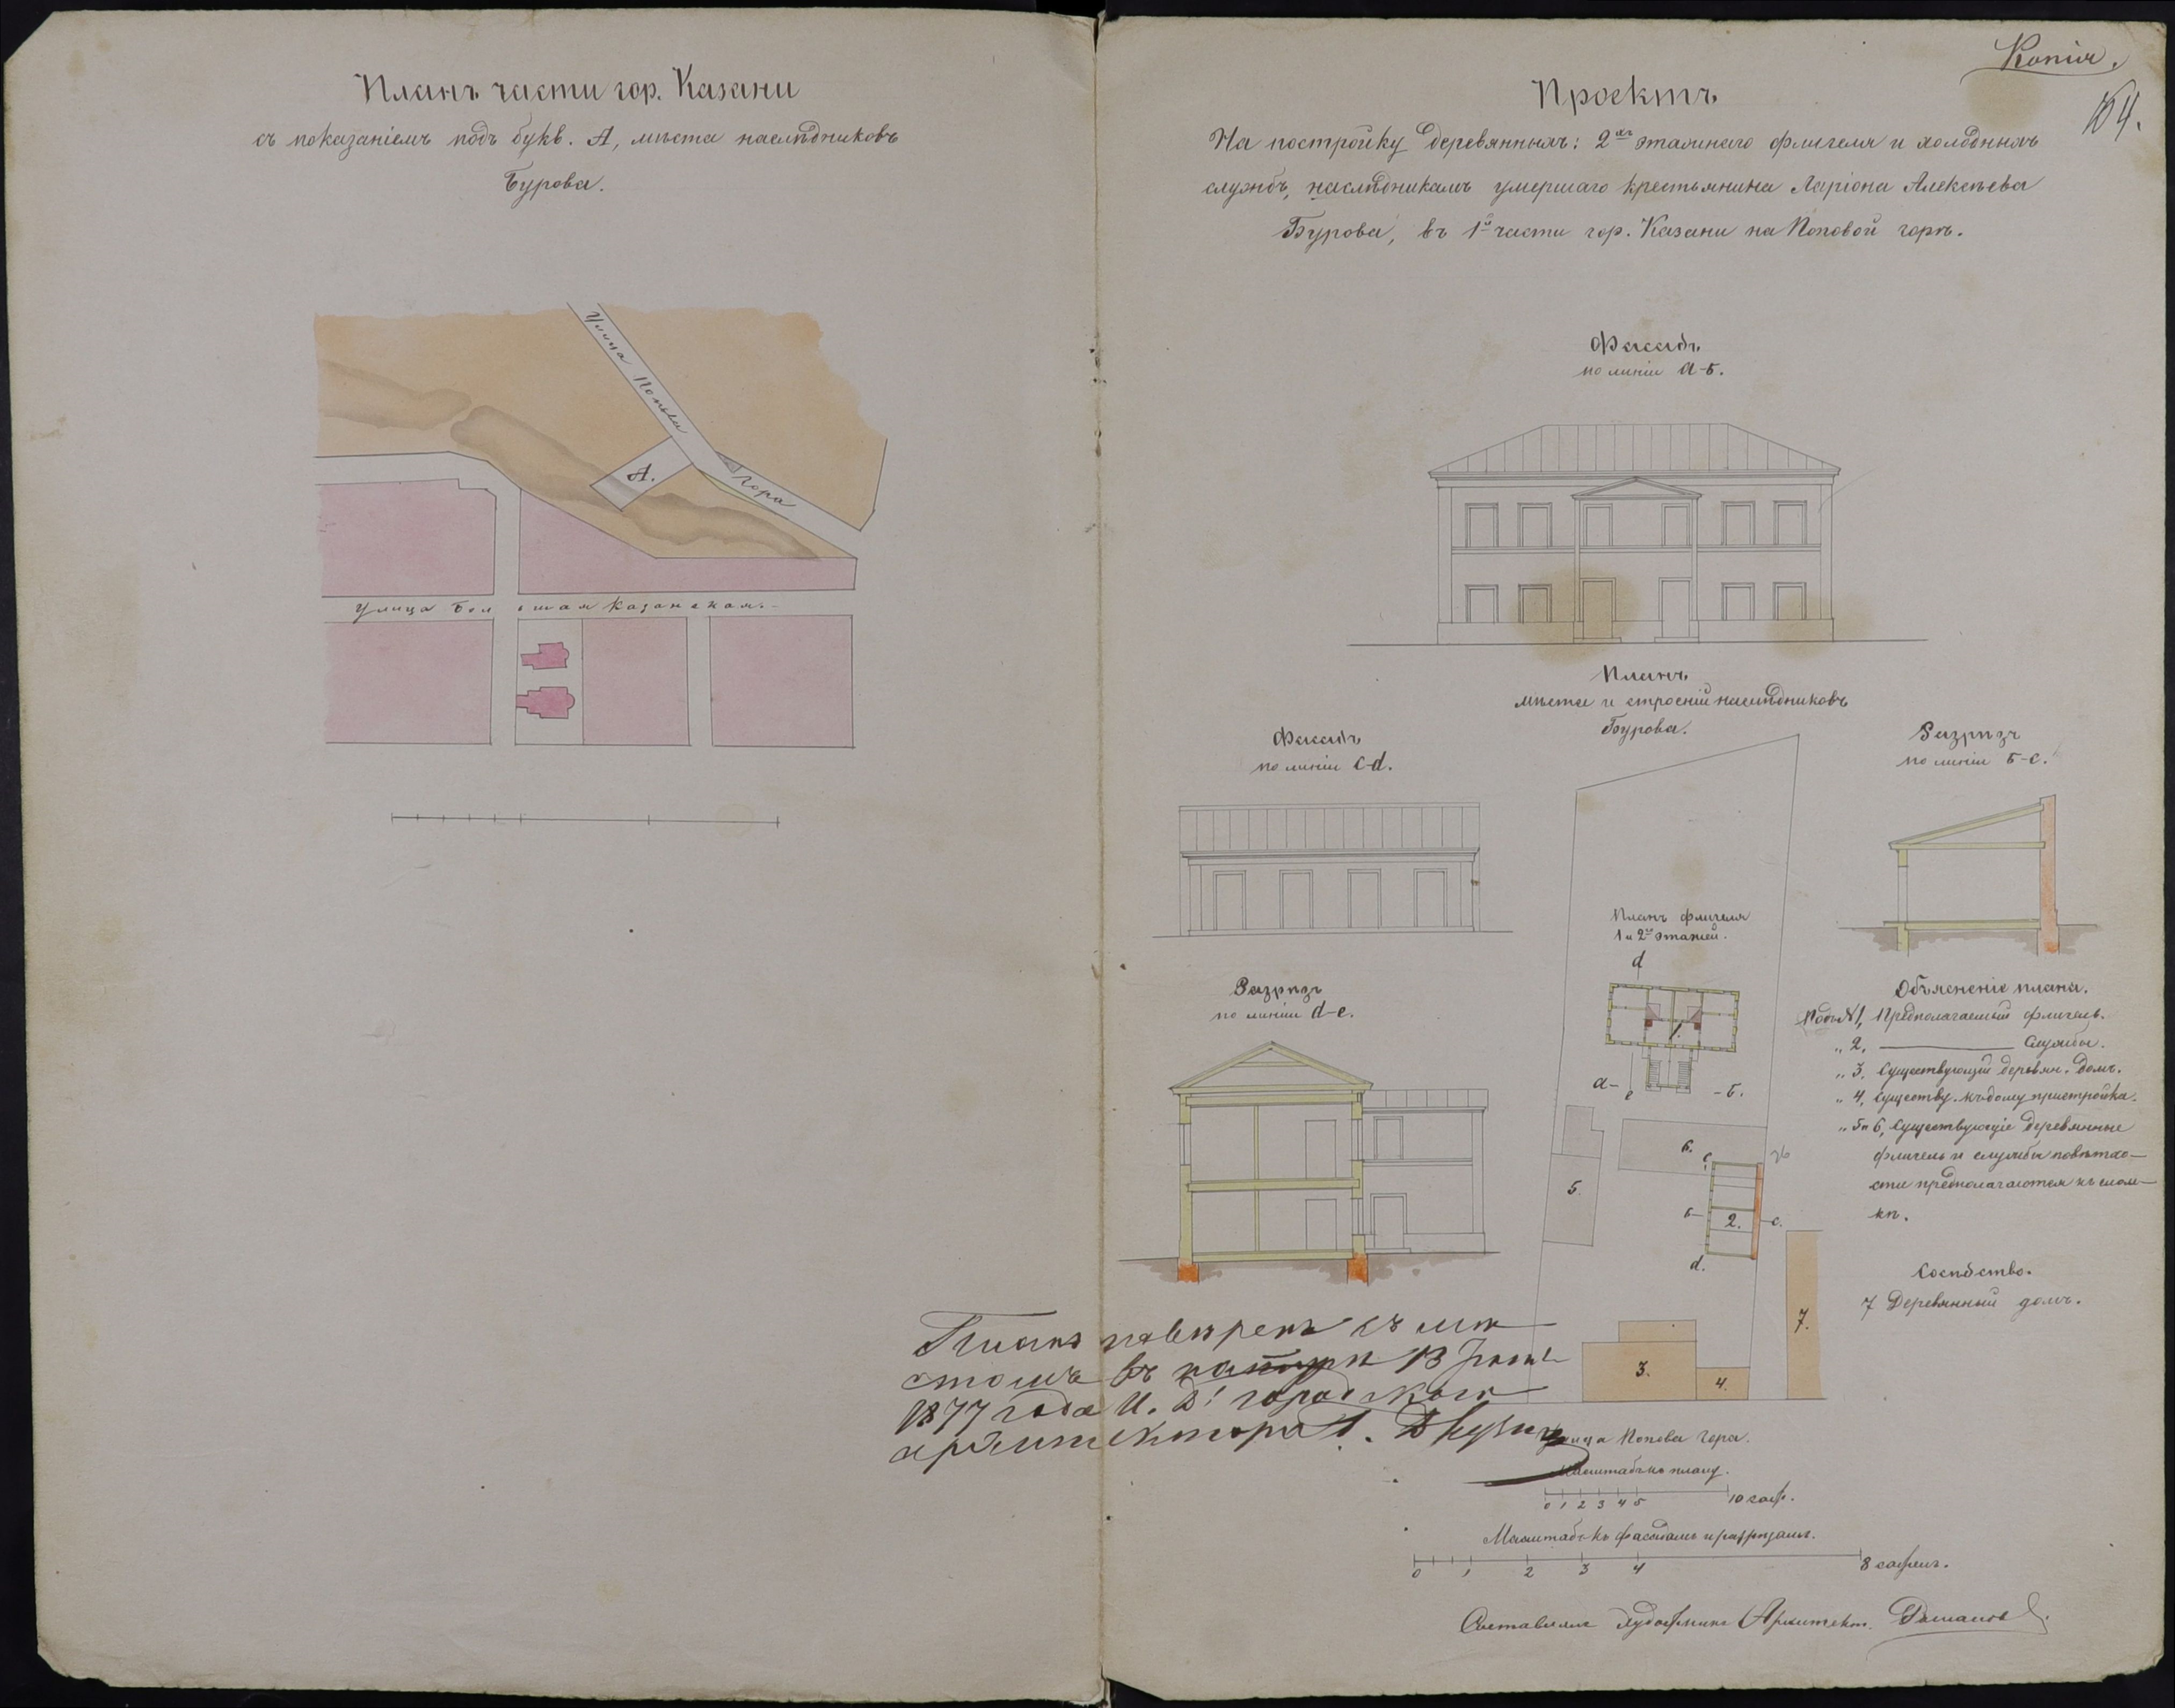 Планъ части гор. Казани
съ показаніемъ подъ букв. А, мѣста наслѣдниковъ
Бурова.
Улица Попова Гора
А.
Улица Большая Казанская.
Копія.
104.
Проектъ
На постройку деревянныхъ: 2хъ этажнаго флигеля и холодныхъ
службъ, наслѣдникамъ умершаго крестьянина Ларіона Алексѣева
Бурова, въ 1й части гор. Казани на Поповой горѣ.
Фасадъ
по линіи а-б.
Планъ
мѣста и строеній наслѣдниковъ
Бурова.
Фасадъ
по линіи c-d.
Разрѣзъ
по линіи б-с.
Планъ флигеля
1 и 2го этажей.
d
1.
а-
е
-б.
Разрѣзъ
по линіи d-е.
Объясненіе плана.
Подъ №1, Предполагаемый флигель.
„ 2, Службы.
„ 3, Существующій деревян. домъ.
„ 4, Существу. къ дому пристройка.
„ 5 и 6, Существующіе деревянные
флигель и службы по вѣтхо-
сти предполагаются къ слом-
кѣ.
6.
с
5.
б-
2.
-с.
d.
Сосѣдство.
7 Деревянный домъ.
7.
3.
4.
Планъ повѣренъ съ мѣ
стомъ въ натурѣ 13
1877 года И. Д. городскаго
архитектора
Улица Попова Гора.
Масштабъ къ плану.
0 1 2 3 4 5 10 саж.
Масштабъ къ фасадамъ и разрѣзамъ.
0 1 2 3 4 8 сажен.
Составлялъ Художникъ Архитект.